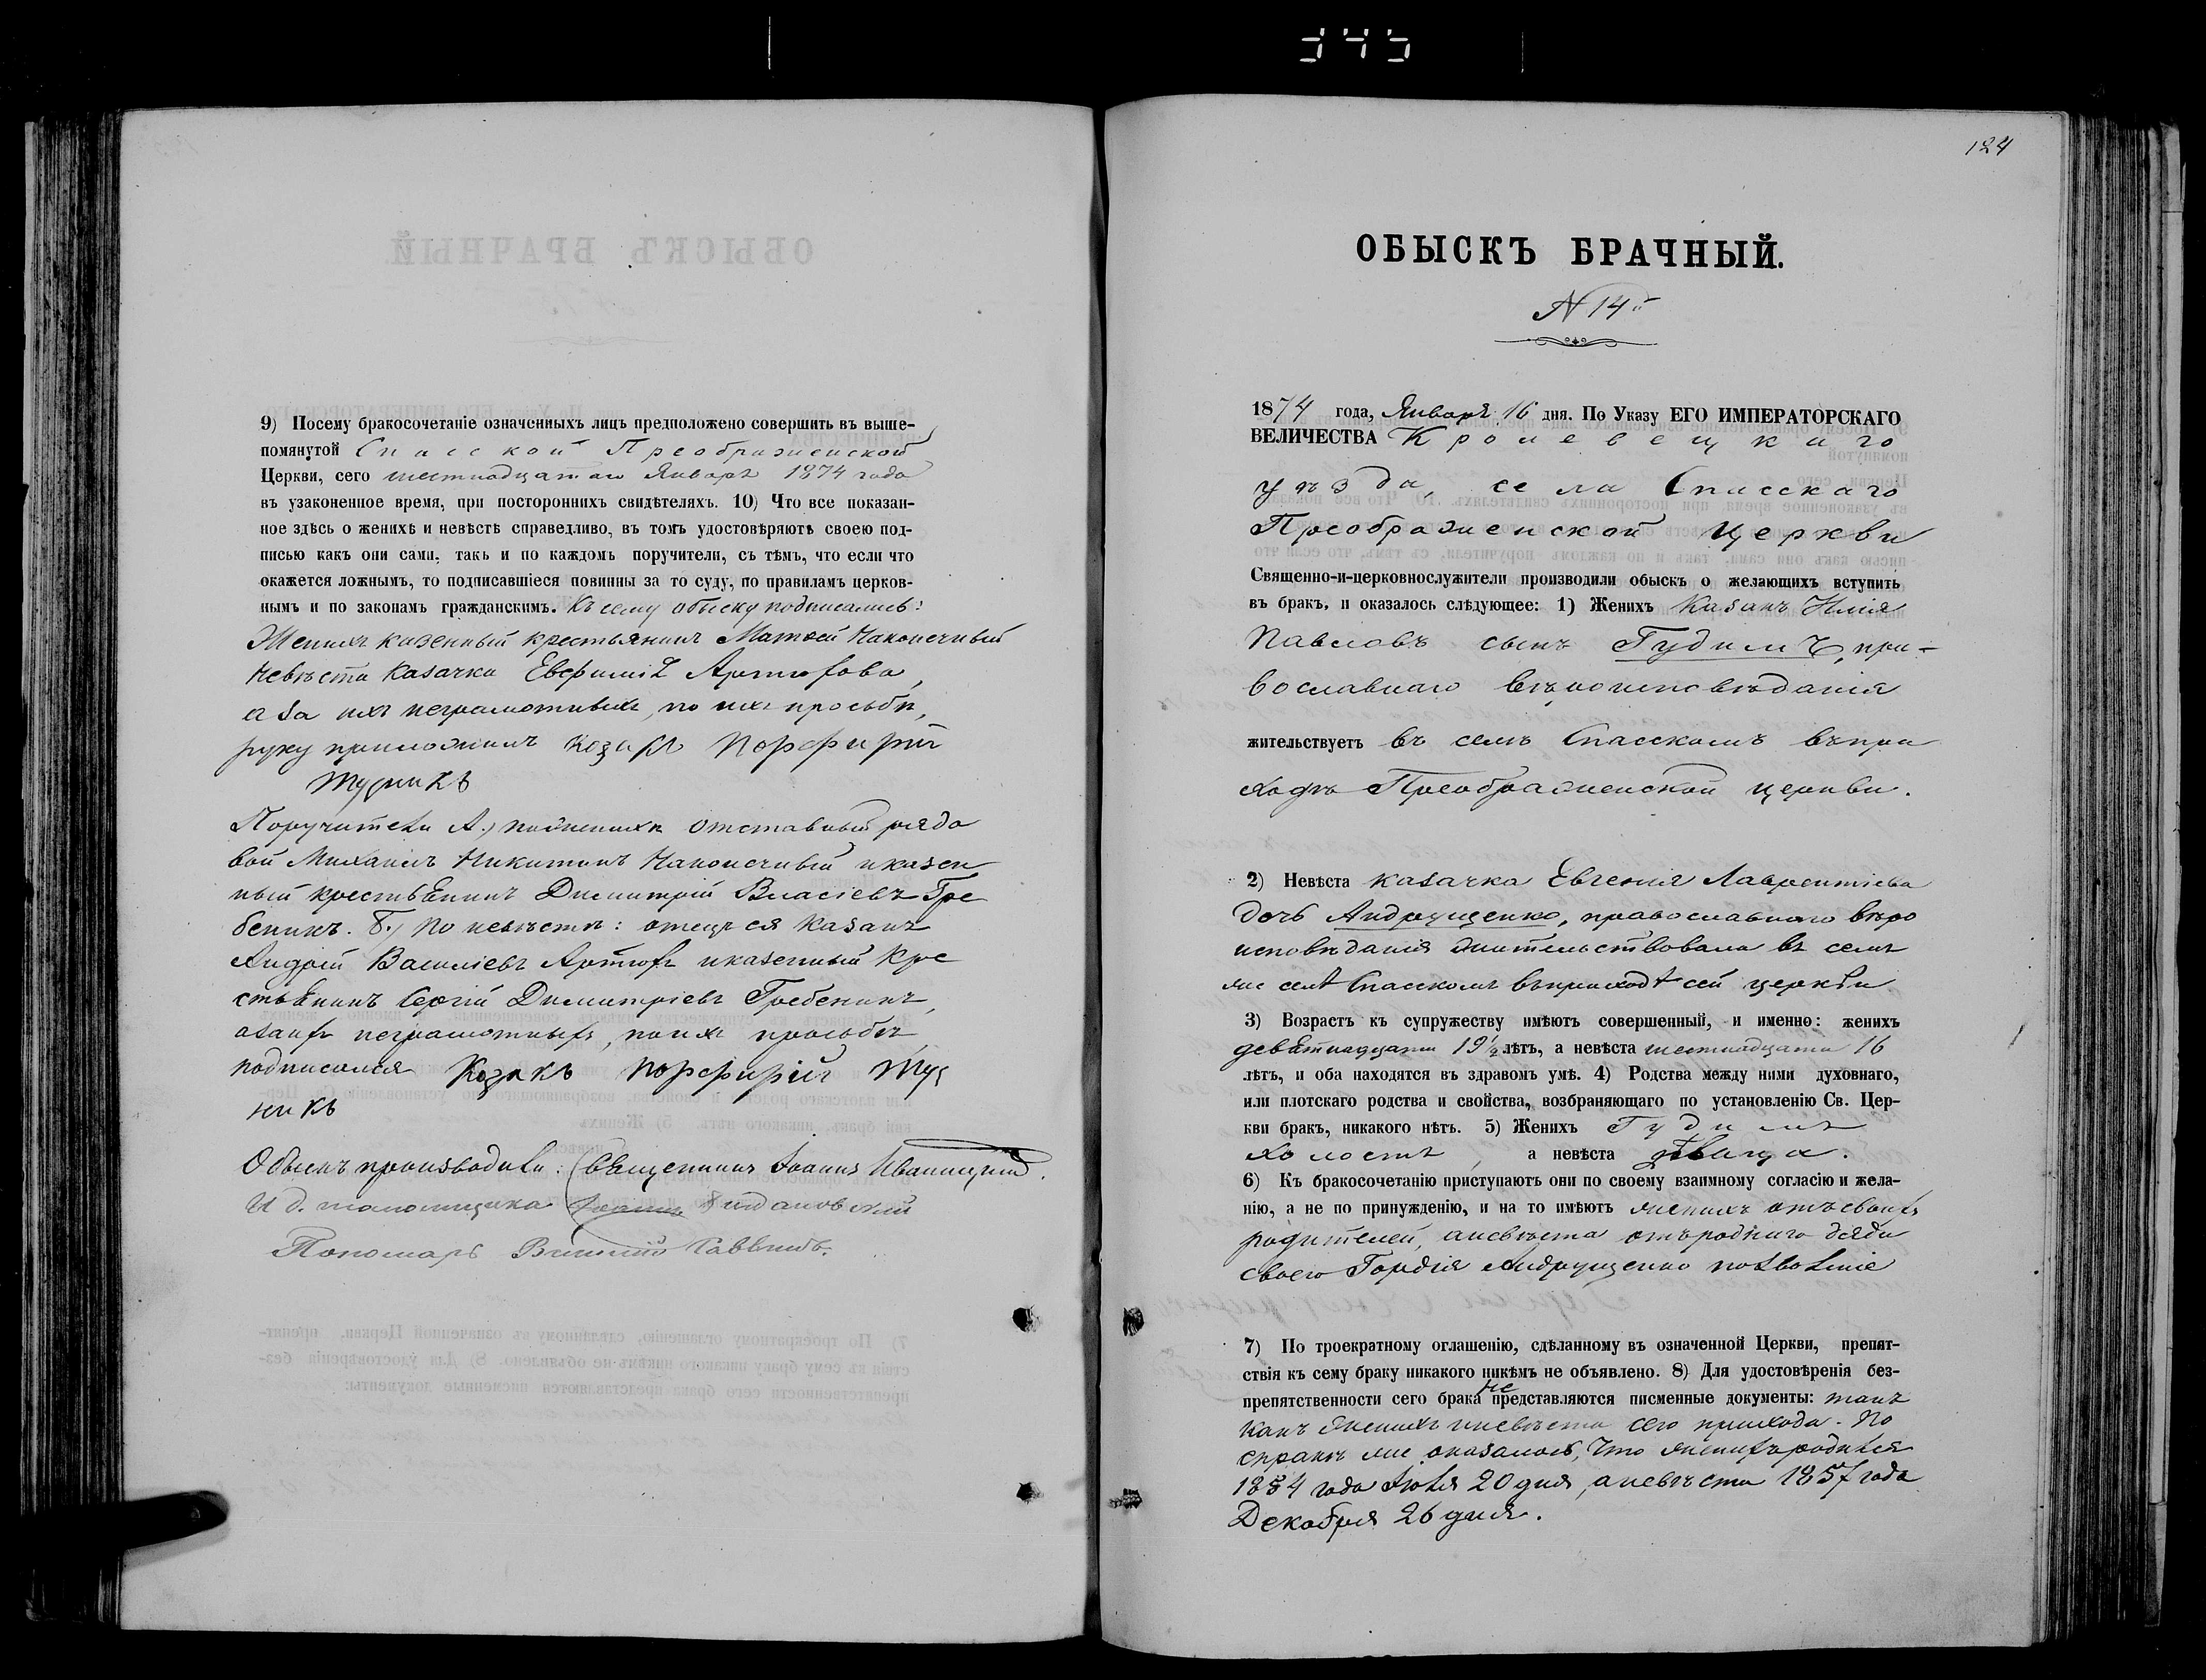 345
9) Посему бракосочетаніе означенныхъ лицъ предположено совершить въ выше-
помянутой Спасской Преображенской
Церкви, сего шестнадцатаго Января 1874 года
въ узаконенное время, при постороннихъ свидѣтеляхъ. 10) Что все показан-
ное здѣсь о женихѣ и невѣстѣ справедливо, въ томъ удостовѣряютъ своею под-
писью какъ они сами, такъ и по каждомъ поручители, съ тѣмъ, что если что
окажется ложнымъ, то подписавшіеся повинны за то суду, по правиламъ церков-
нымъ и по законамъ гражданскимъ. Къ сему обыску подписались:
Женихъ казенный крестьянинъ Матѳей Наконечный
Невѣста казачка Евфимія
а за ихъ неграмотныхъ, по ихъ просьбѣ,
руку приложилъ козакъ Порфирій
Турикъ
Поручители А.) по женихѣ отставный рядо
вой Михаилъ Никитинъ Наконечный и казен
ный крестьянинъ Димитрій Власіевъ Гре
беникъ. Б.) По невѣстѣ: отецъ ея казакъ
Андрій Василіевъ и казенный кре
стьянинъ Сергій Димитріевъ Гребеникъ,
а за ихъ неграмотныхъ, по ихъ просьбѣ
подписался Козакъ Порфирій Ту
никъ
Обыскъ производили: Священникъ Іоаннъ Иваницкій.
И д. псаломщика Іоаннъ
Пономарь Саввичъ.
124
ОБЫСКЪ БРАЧНЫЙ.
N 14й
1874 года, Января 16 дня. По Указу ЕГО ИМПЕРАТОРСКАГО
ВЕЛИЧЕСТВА Кролевецкаго
уѣзда, села Спасскаго
Преображенской Церкви
Священно-и-церковнослужители производили обыскъ о желающихъ вступить
въ бракъ, и оказалось слѣдующее: 1) Женихъ Казакъ Илія
Павловъ сынъ Гудимъ, пра-
вославнаго вѣроисповѣданія
жительствуетъ въ селѣ Спасскомъ въ при
ходѣ Преображенской церкви.
2) Невѣста казачка Евгенія Лаврентіева
дочь Андрущенко, православнаго вѣро
исповѣданія жительствовала въ семъ
же селѣ Спасскомъ въ приходѣ сей церкви
3) Возрастъ къ супружеству имѣютъ совершенный, и именно: женихъ
девятнадцати 19½ лѣтъ, а невѣста шестнадцати 16
лѣтъ, и оба находятся въ здравомъ умѣ. 4) Родства между ними духовнаго,
или плотскаго родства и свойства, возбраняющаго по установленію Св. Цер-
кви бракъ, никакого нѣтъ. 5) Женихъ Гудимъ
холостъ, а невѣста дѣвица.
6) Къ бракосочетанію приступаютъ они по своему взаимному согласію и жела-
нію, а не по принужденію, и на то имѣютъ женихъ отъ своихъ
родителей, а невѣста отъ роднаго дяди
своего Гордія Андрущенко позволеніе
7) По троекратному оглашенію, сдѣланному въ означенной Церкви, препят-
ствія къ сему браку никакого никѣмъ не объявлено. 8) Для удостовѣренія без-
препятственности сего брака не представляются писменные документы: такъ
какъ женихъ и невѣста сего прихода. По
справкѣ же оказалось, что женихъ родился
1854 года Іюля 20 дня, а невѣста 1857 года
Декабря 26 дня.